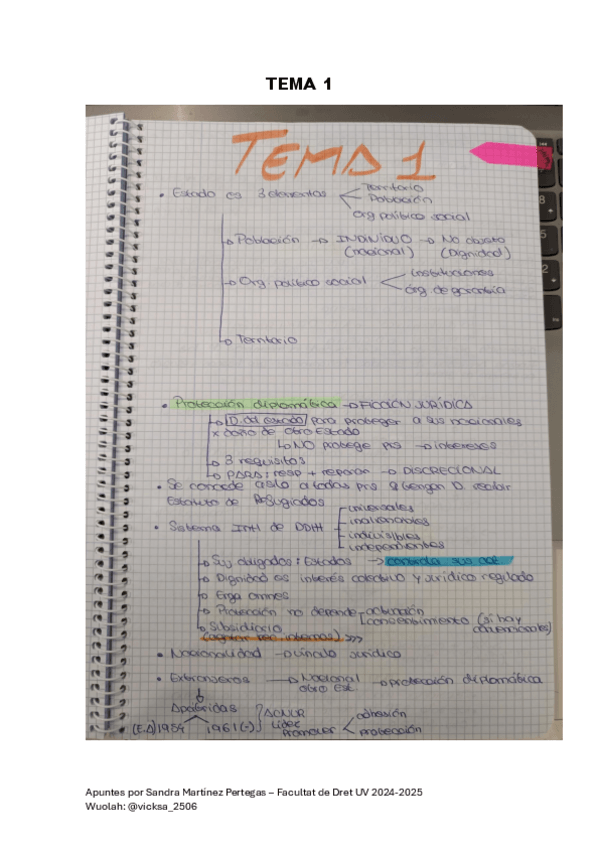 TEMA 1
TEMA 1
• Estado es 3 elementos
Territorio
Población
Org político social
Población → INDIVIDUO → No objeto
(nacional) (Dignidad)
Org. político social
instituciones
órg. de garantía
Territorio
• Protección diplomática → FICCIÓN JURÍDICA
D. del estado para proteger a sus nacionales
x daño de otro Estado
NO protege prs → intereses
3 requisitos
PARA: resp + reparar → DISCRECIONAL
• Se concede asilo a todas prs q tengan D. recibir
Estatuto de Refugiados
• Sistema Intl de DDHH
universales
inalienables
indivisibles
independientes
Suj obligados: Estados → controla sus
Dignidad es interés colectivo y jurídico regulado
Erga omnes
Protección no depende
actuación
consentimiento (si hay
convencionales)
Subsidiario
(agotar rec internos) >>>
• Nacionalidad → vínculo jurídico
• Extranjeros → Nacional
otro Est. → protección diplomática
Apátridas
(E.A) 1954 1961 (-)
ACNUR
Líder
Promover
adhesión
protección
Apuntes por Sandra Martínez Pertegas – Facultat de Dret UV 2024-2025
Wuolah: @vicksa_2506